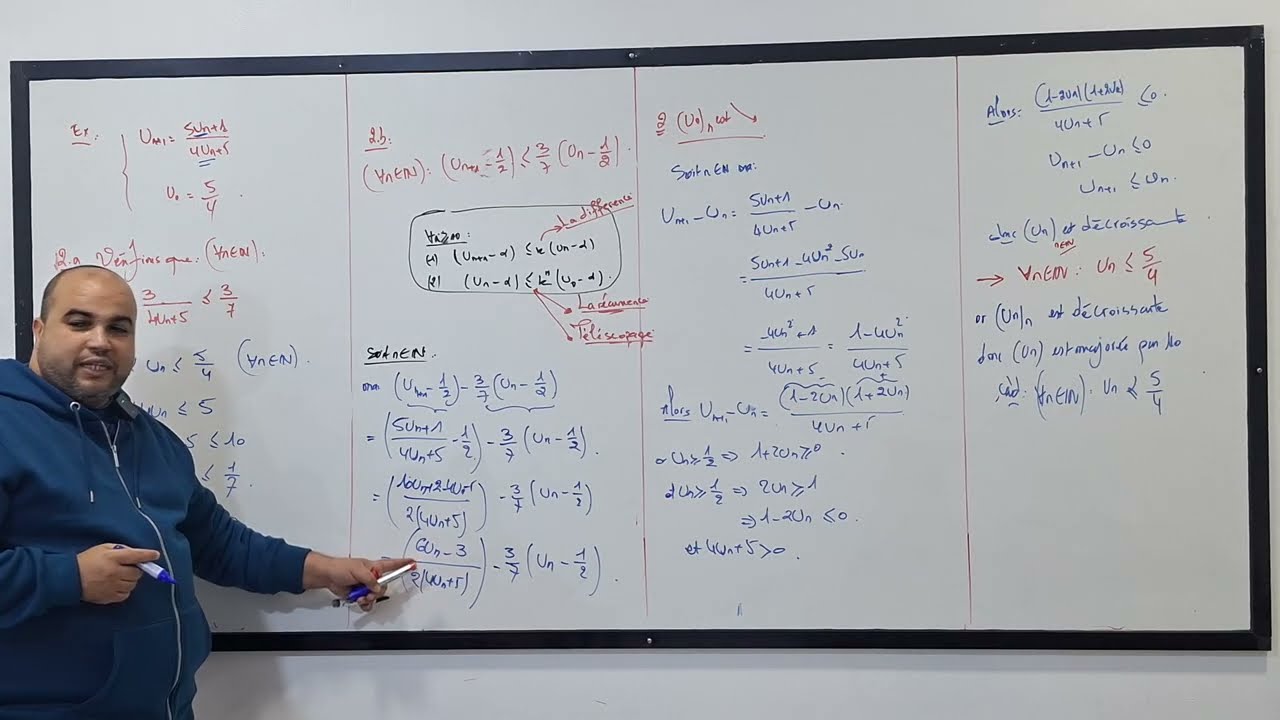 Ex: { Un+1 = (5Un+1)/(4Un+5)
U₀ = 5/4 .
2.a Vérifions que: (∀n∈IN):
3/(4Un+5) ≤ 3/7
Un ≤ 5/4 (∀n∈IN).
≤ 5
5 ≤ 10
≤ 1/7 .
2.b:
(∀n∈IN): (Un+1 - 1/2) ≤ 3/7 (Un - 1/2).
La différence
(1) (Un+1 - α) ≤ k (Un - α)
(2) (Un - α) ≤ kⁿ (U₀ - α).
La récurrence
Téléscopage
Soit n∈IN.
ona (Un+1 - 1/2) - 3/7 (Un - 1/2)
= ((5Un+1)/(4Un+5) - 1/2) - 3/7 (Un - 1/2).
= ((10Un+2-4Un-5)/(2(4Un+5))) - 3/7 (Un - 1/2)
= ((6Un-3)/(2(4Un+5))) - 3/7 (Un - 1/2).
2 (Un)n est ↘
Soit n∈IN ona:
Un+1 - Un = (5Un+1)/(4Un+5) - Un.
= (5Un+1-4Un²-5Un)/(4Un+5)
= (-4Un²+1)/(4Un+5) = (1-4Un²)/(4Un+5)
Alors Un+1 - Un = ((1-2Un)(1+2Un))/(4Un+5)
or Un ≥ 1/2 ⇒ 1+2Un ≥ 0 .
et Un ≥ 1/2 ⇒ 2Un ≥ 1
⇒ 1-2Un ≤ 0.
et 4Un+5 > 0.
Alors: ((1-2Un)(1+2Un))/(4Un+5) ≤ 0.
Un+1 - Un ≤ 0
Un+1 ≤ Un.
donc (Un)n∈IN est décroissante
→ ∀n∈IN: Un ≤ 5/4
or (Un)n est décroissante
donc (Un) est majorée par U₀
càd: (∀n∈IN): Un ≤ 5/4